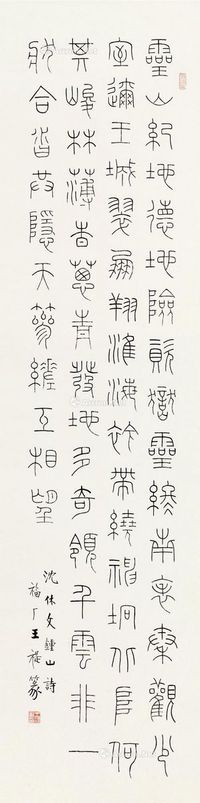 靈山紀地德地險資嶽靈終南表秦觀少
室邇王城翠鳳翔淮海衿帶繞神坰北阜何
其峻林薄杳蔥青發地多奇嶺干雲非一
狀合沓共隱天參差互相望
沈休文鍾山詩
福厂王禔篆